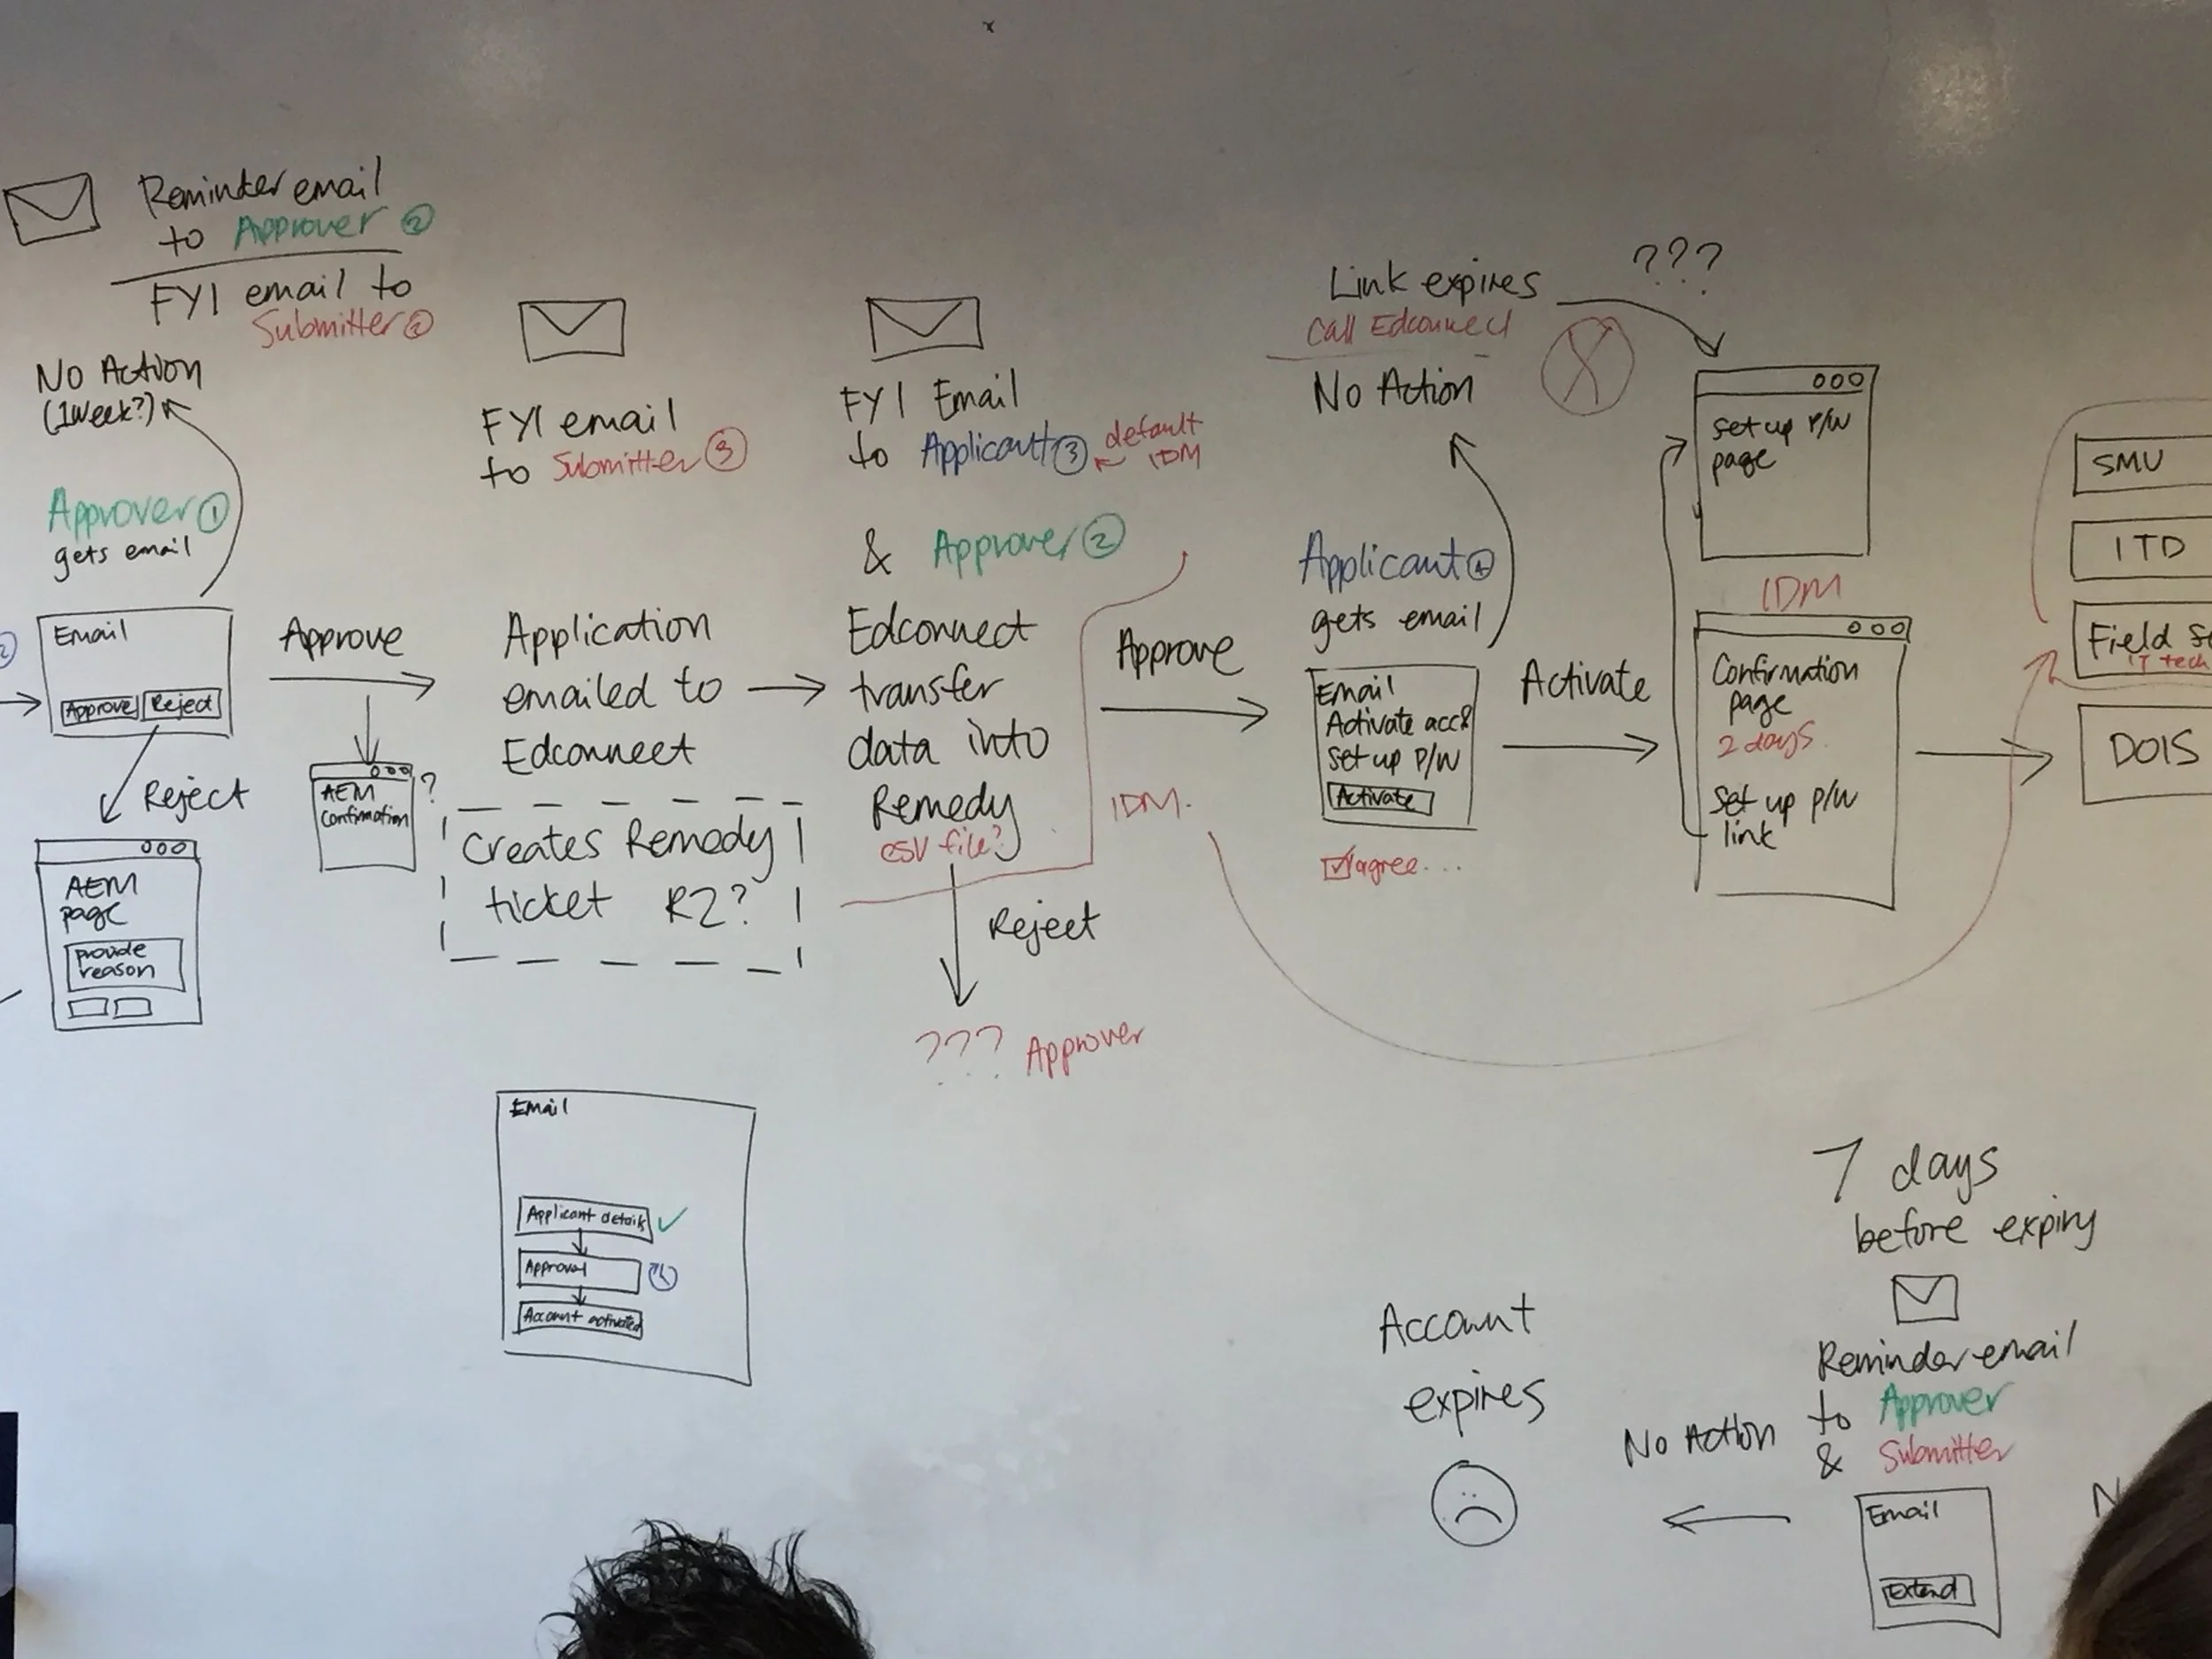 Reminder email
to Approver ②
FYI email to
Submitter ②
No Action
(1week?)
Approver ①
gets email
Email
Approve Reject
Reject
AEM
page
provide
reason
Approve
AEM
confirmation
?
FYI email
to Submitter ③
Application
emailed to
Edconnect
creates Remedy
ticket R2?
FYI Email
to Applicant ③
default
IDM
& Approver ②
Edconnect
transfer
data into
Remedy
csv file?
Reject
??? Approver
Approve
IDM.
Link expires
Call Edconnect
No Action
???
X
Applicant ④
gets email
Email
Activate acc?
set up P/W
Activate
agree...
Activate
set up P/W
page
IDM
Confirmation
page
2 days.
Set up P/W
link
SMU
ITD
Field
IT tech
DOIS
Email
Applicant details
Approval
Account activated
7 days
before expiry
Reminder email
to Approver
& Submitter
Email
Extend
No Action
Account
expires